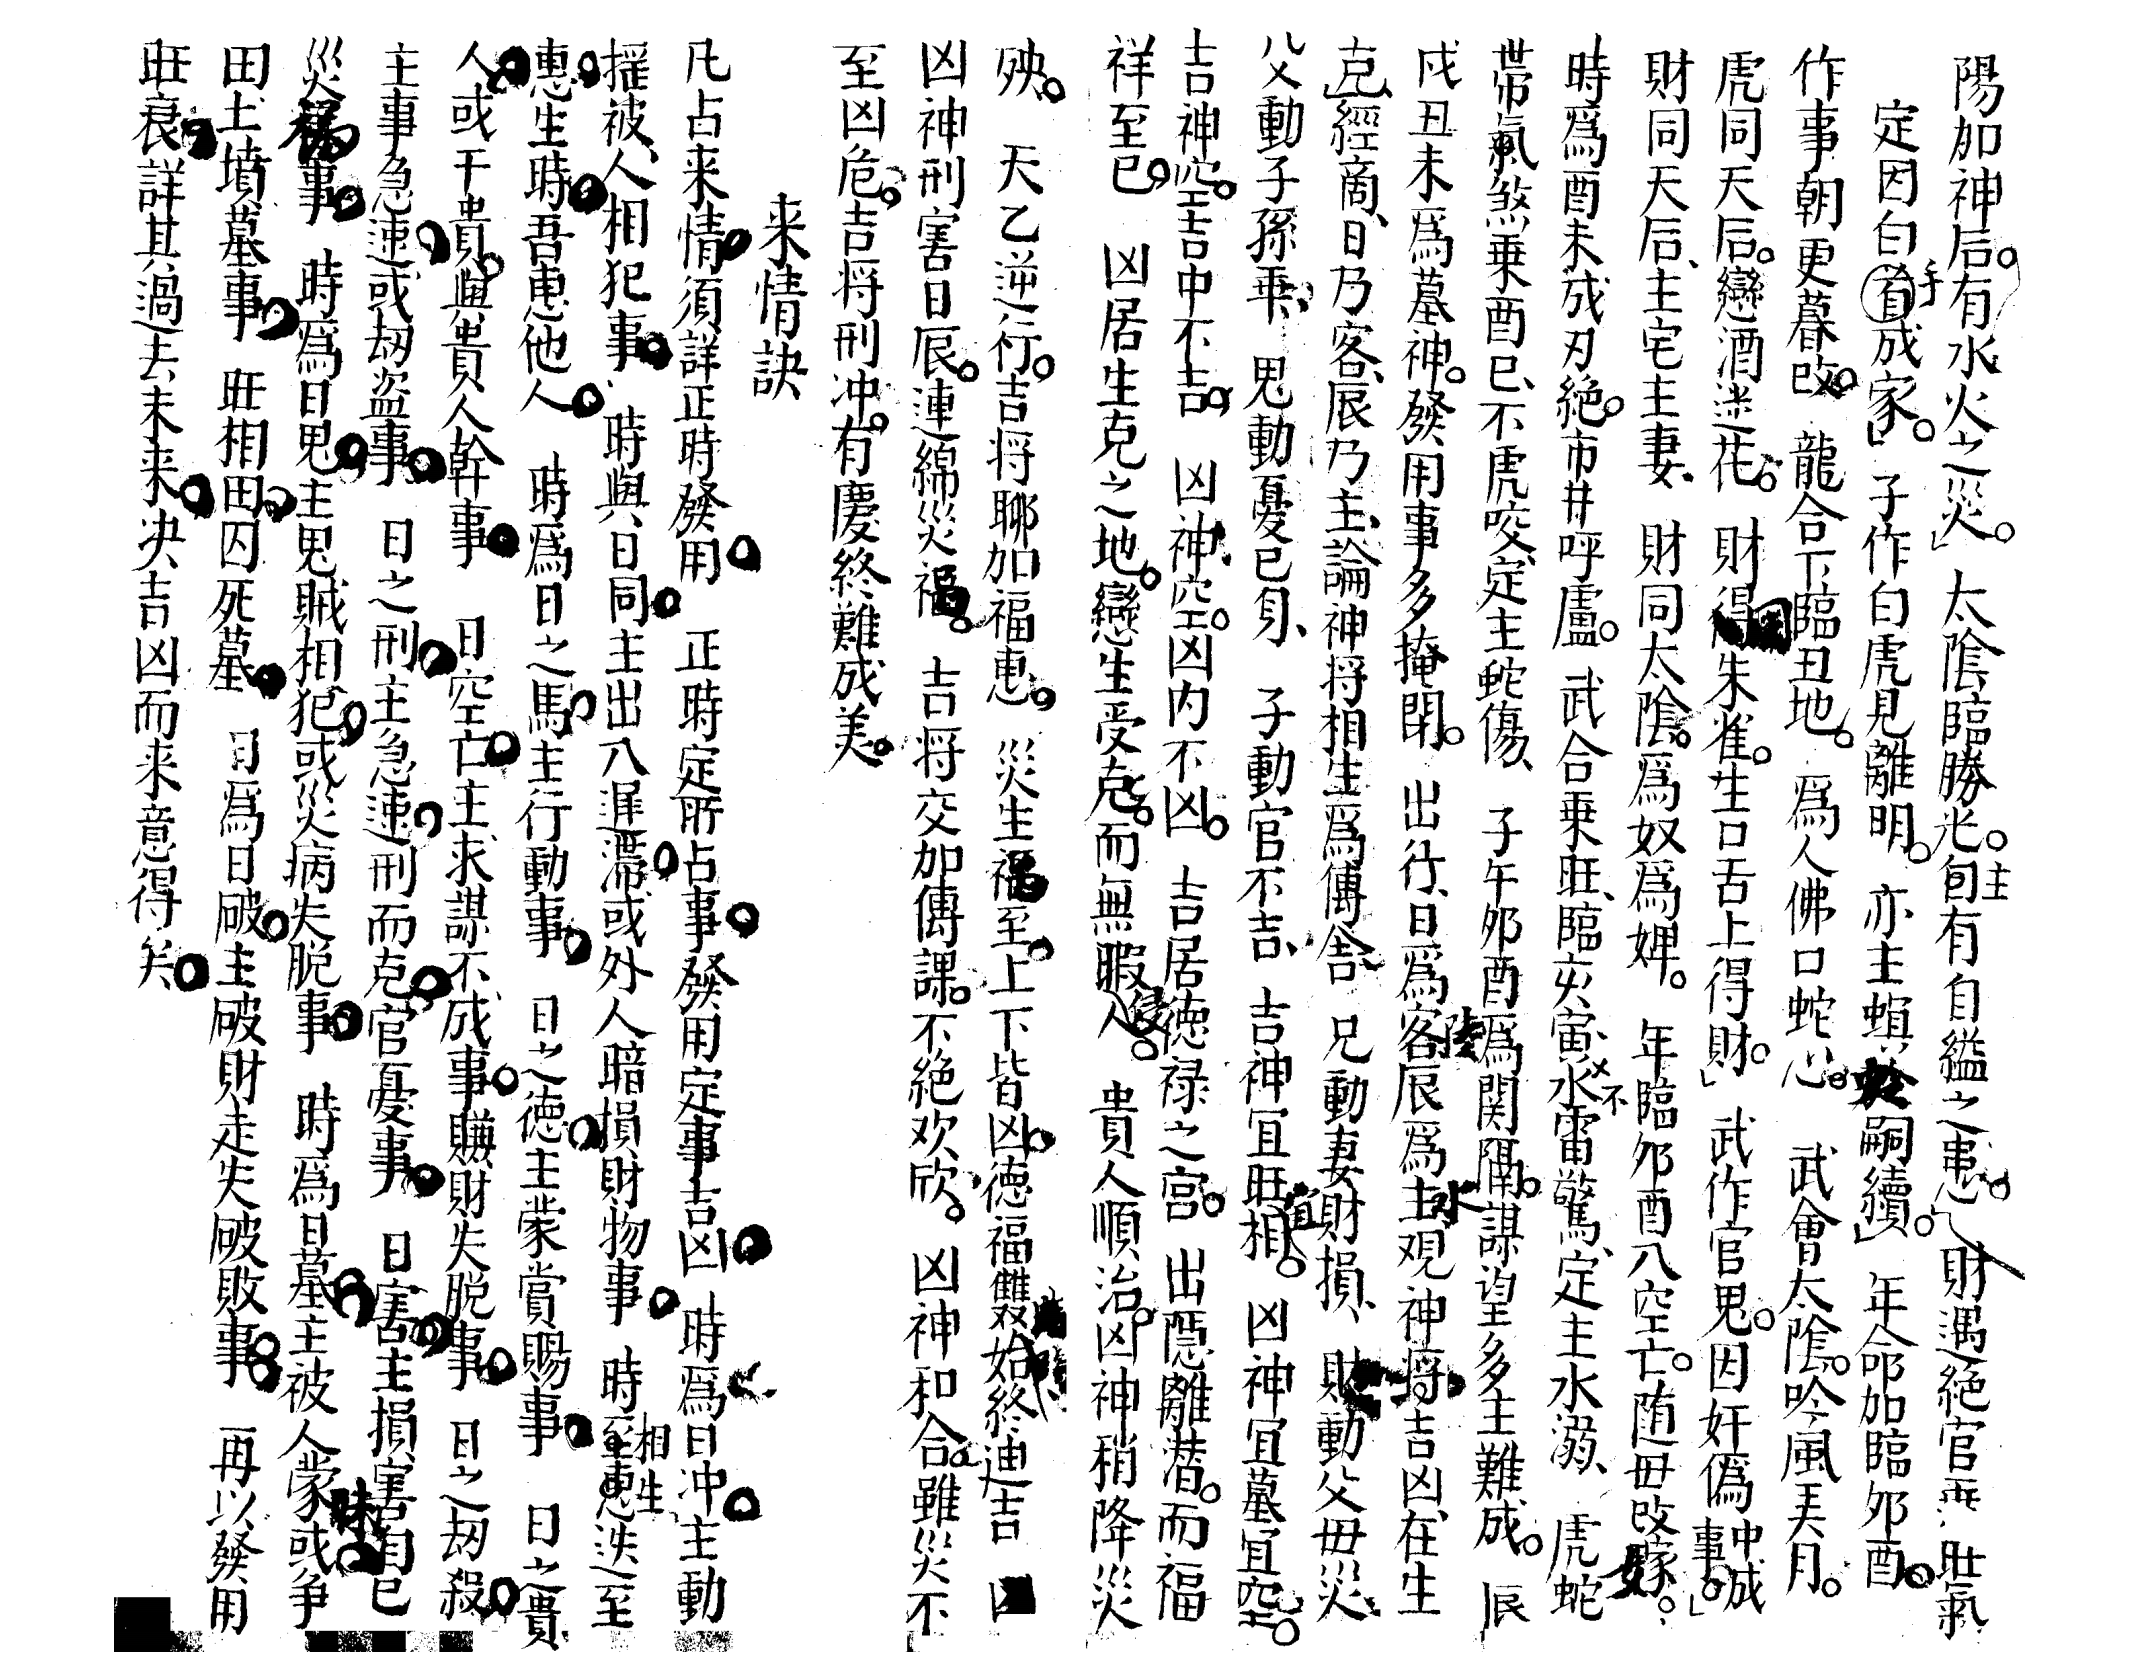 陽加神后有水火之災太陰臨勝光主有自縊之患財遇絕官無旺氣
定因白手成家子作白虎見離明亦主螟蛉嗣續年命加臨夘酉
作事朝更暮改龍合下臨丑地為人佛口蛇心武會太陰吟風弄月
虎同天后戀酒迷花財得朱雀生口舌上得財武作官鬼因奸偽中成事
財同天后主宅主妻財同太陰為奴為婢年臨夘酉八空亡随母改嫁
時為酉未成刃絕市井呼盧武合乗旺臨亥寅水不雷驚定主水溺虎蛇
帶氣煞乗酉巳不虎咬定主蛇傷子午夘酉為関隔謀望多主難成辰
戌丑未為墓神發用事多掩閉出行日為客辰為主水观神将吉凶在生
克經啇日乃客辰乃主論神将相生為傳舍兄動妻財損財動父母災
父動子孫乗鬼動憂己身子動官不吉吉神宜旺相凶神宜墓宜空
吉神空吉中不吉凶神空凶内不凶吉居德禄之宫出隱離潜而福
祥至已凶居生克之地戀生受克而無暇人侵貴人順治凶神稍降災
殃天乙逆行吉将聊加福惠災生福至上下皆凶德福雙始終迪吉
凶神刑害日辰連綿災福吉将交加傳課不絕欢欣凶神和合雖災不
至凶危吉将刑冲有慶終難成美
来情訣
凡占来情須詳正時發用正時定所占事發用定事吉凶時為日冲主動
摇被人相犯事時與日同主出入遲滯或外人暗損財物事時至惠迭至相生
惠生時吾惠他人時為日之馬主行動事日之德主蒙賞賜事日之貴
人或干貴與貴人幹事日空亡主求謀不成事賺財失脱事日之刼殺
主事急速或刼盗事日之刑主急速刑而克官憂事日害主損害自已
災禍事時為日鬼主鬼賊相犯或災病失脱事時為日墓主被人蒙昧或争
田土墳墓事旺相田囚死墓月為日破主破財走失破敗事再以發用
旺衰詳其過去未来决吉凶而来意得矣